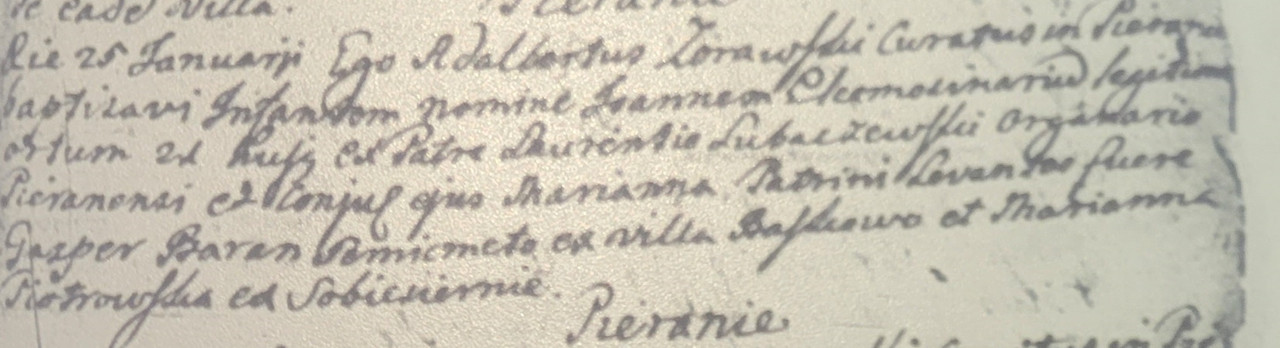 eade Villa.
Die 25 Januarji Ego Adalbertus Zorawski Curatus in Pieranie
baptizavi Infantem nomine Joannem Eleemosinarium legitime
ortum 21 hujg ex Patre Laurentio Lubaczewski Organario
Pieranensi et Conjug ejus Marianna Patrini Levantes fuere
Gasper Baran ex villa Baskowo et Marianna
Piotrowska ex Sobiesiernie.
Pieranie